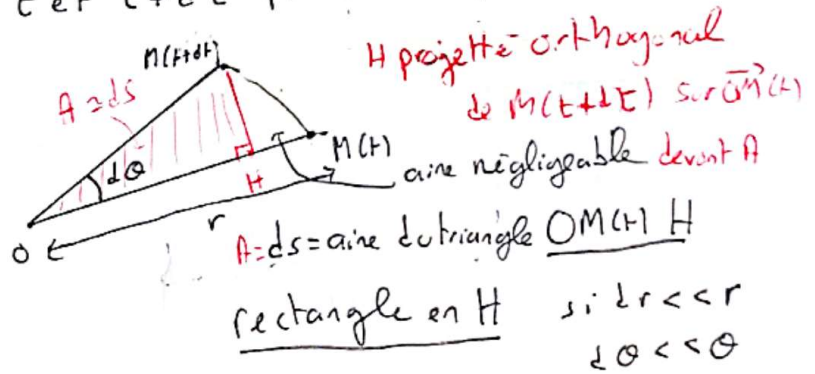 t et t+dt
M(t+dt)
H projetté orthogonal
de M(t+dt) sur OM(t)
A = ds
dθ
M(t)
H
aire négligeable devant A
r
O
A=ds=aire du triangle OM(t) H
rectangle en H si dr<<r
dθ<<θ